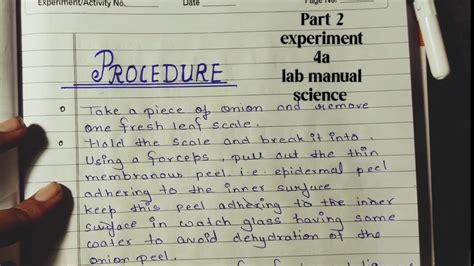 Experiment/Activity No.
Date
Page No.
Part 2
experiment
4a
lab manual
science
PROCEDURE
Take a piece of onion and remove
one fresh leaf scale.
Hold the scale and break it into.
Using a forceps, pull out the thin
membranous peel. i.e. epidermal peel
adhering to the inner surface
keep this peel adhering to the inner
surface in watch glass having some
water to avoid dehydration of the
onion peel.